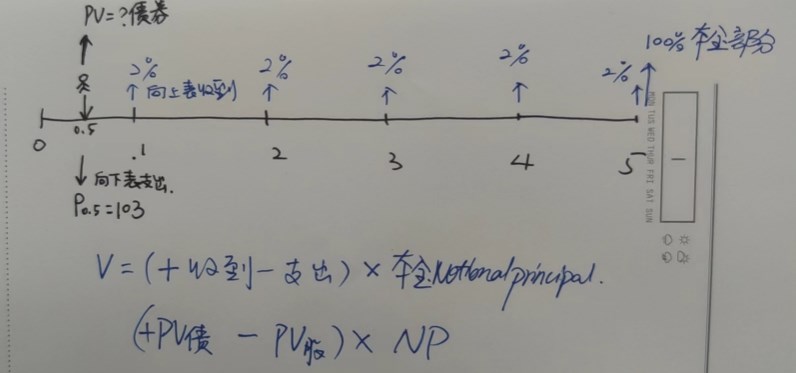 PV=?債券
100% 本金部分
2% 2% 2% 2% 2%
↑向上表收到
求
0 0.5 1 2 3 4 5
↓向下表支出.
P0.5=103
MON TUE WED THU FRI SAT SUN
V=(+收到-支出)×本金Notional principal.
(+PV債 - PV股)× NP